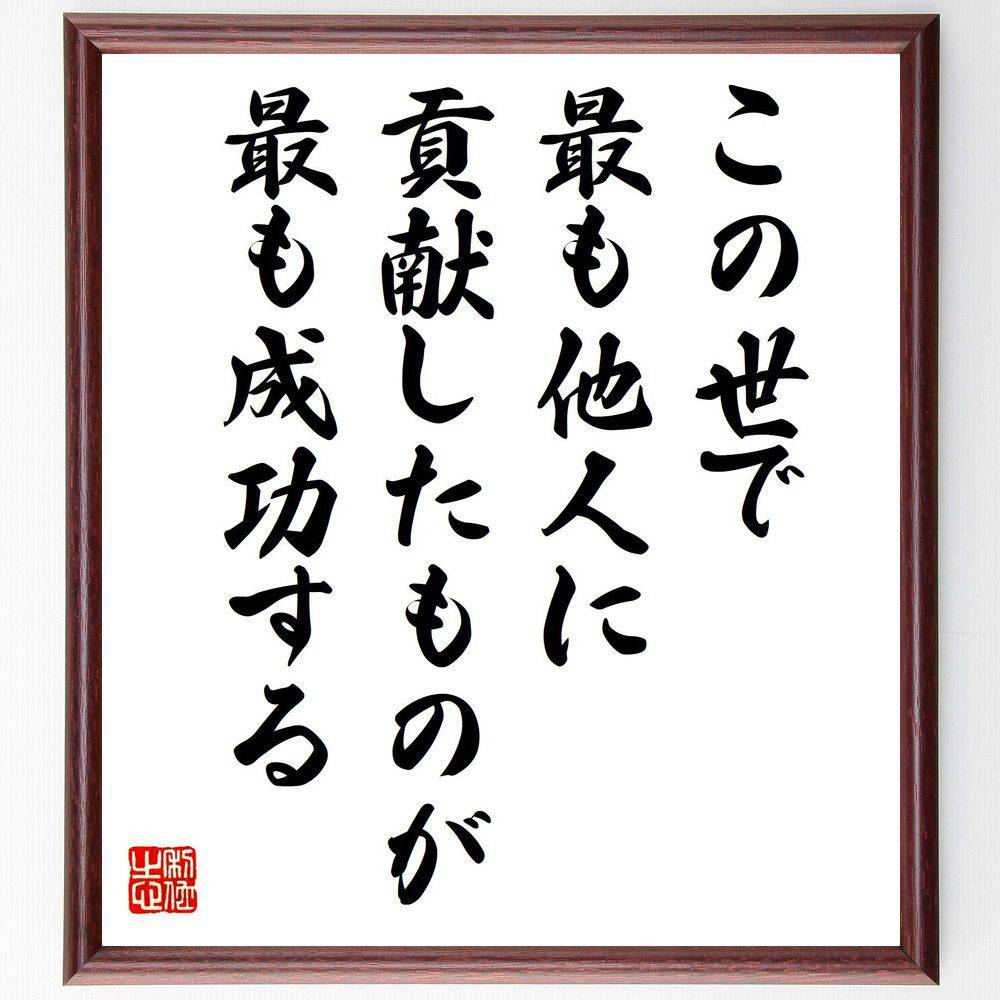 この世で
最も他人に
貢献したものが
最も成功する